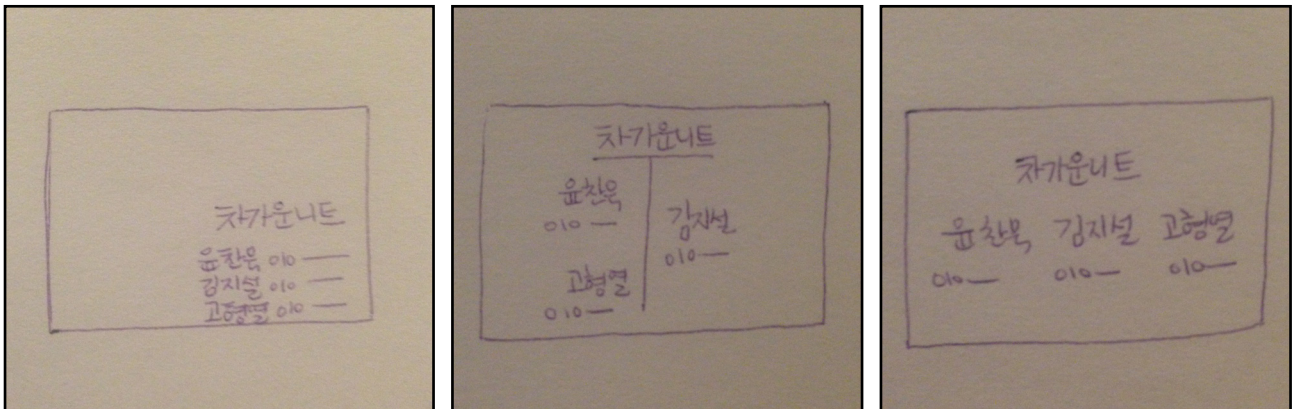 차가운니트
윤찬욱 010
김지설 010
고형열 010
차가운니트
윤찬욱
010
김지설
010
고형열
010
차가운니트
윤찬욱 김지설 고형열
010 010 010